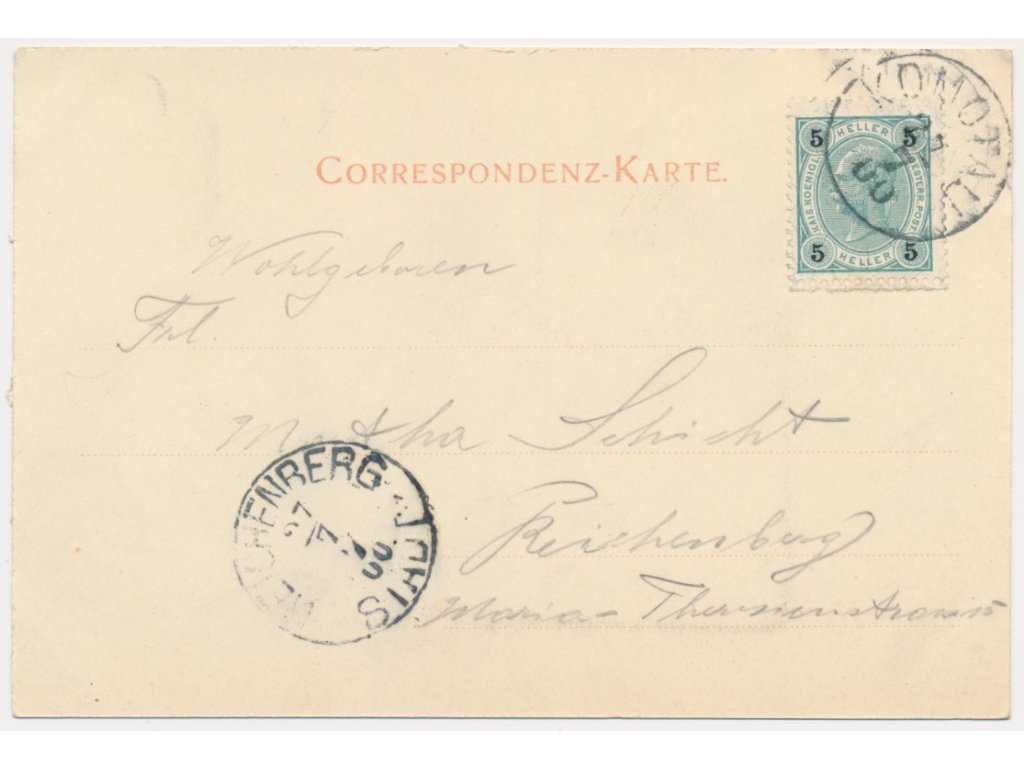 CORRESPONDENZ-KARTE.
KOMOTAU
27
7
00
5 HELLER 5
KAIS. KOENIGL. OESTERR. POST.
5 HELLER 5
Wohlgeboren
Frl.
Martha Schicht
Reichenberg
Maria-Theresienstrasse
REICHENBERG
27
7
00